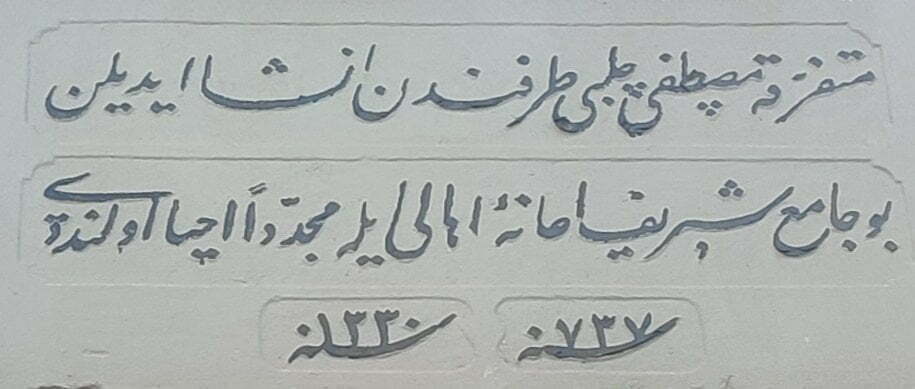 متفرقه مصطفی چلبی طرفندن انشا ایدیلن
بو جامع شریف اعانهٔ اهالی ایله مجدّداً احیا اولندی
سنه ٧٣٧ سنه ١٣٣٠